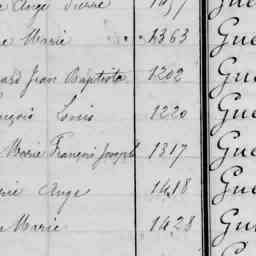 Ange Pierre
Marie 1363 Gue
Jean Baptiste 1202 Gue
Louis 1220 Gue
Marie François Joseph 1317 Gue
Ange 1418 Gue
Marie 1428 Gue